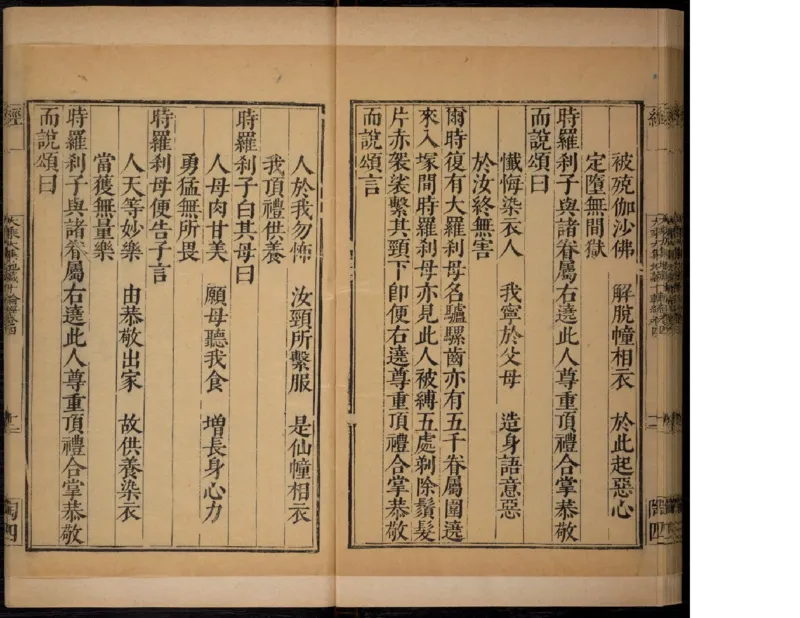 被殑伽沙佛　解脫幢相衣　於此起惡心
定墮無間獄
時羅刹子與諸眷屬右遶此人尊重頂禮合掌恭敬
而說頌曰
懺悔染衣人　我寧於父母　造身語意惡
於汝終無害
爾時復有大羅刹母名驢騾齒亦有五千眷屬圍遶
來入塚間時羅刹母亦見此人被縛五處剃除鬚髮
片赤袈裟繫其頸下卽便右遶尊重頂禮合掌恭敬
而說頌言
人於我勿怖　汝頸所繫服　是仙幢相衣
我頂禮供養
時羅刹子白其母曰
人母肉甘美　願母聽我食　增長身心力
勇猛無所畏
時羅刹母便告子言
人天等妙樂　由恭敬出家　故供養染衣
當獲無量樂
時羅刹子與諸眷屬右遶此人尊重頂禮合掌恭敬
而說頌曰
經